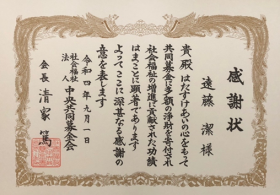 感謝状
遠藤 潔 様
貴殿はたすけあいの心をもって
共同募金に多額の浄財を寄付され
社会福祉の増進に貢献された功績
はまことに顕著であります
よってここに深甚なる感謝の
意を表します
令和四年九月一日
社会福祉法人 中央共同募金会
会長 清家 篤